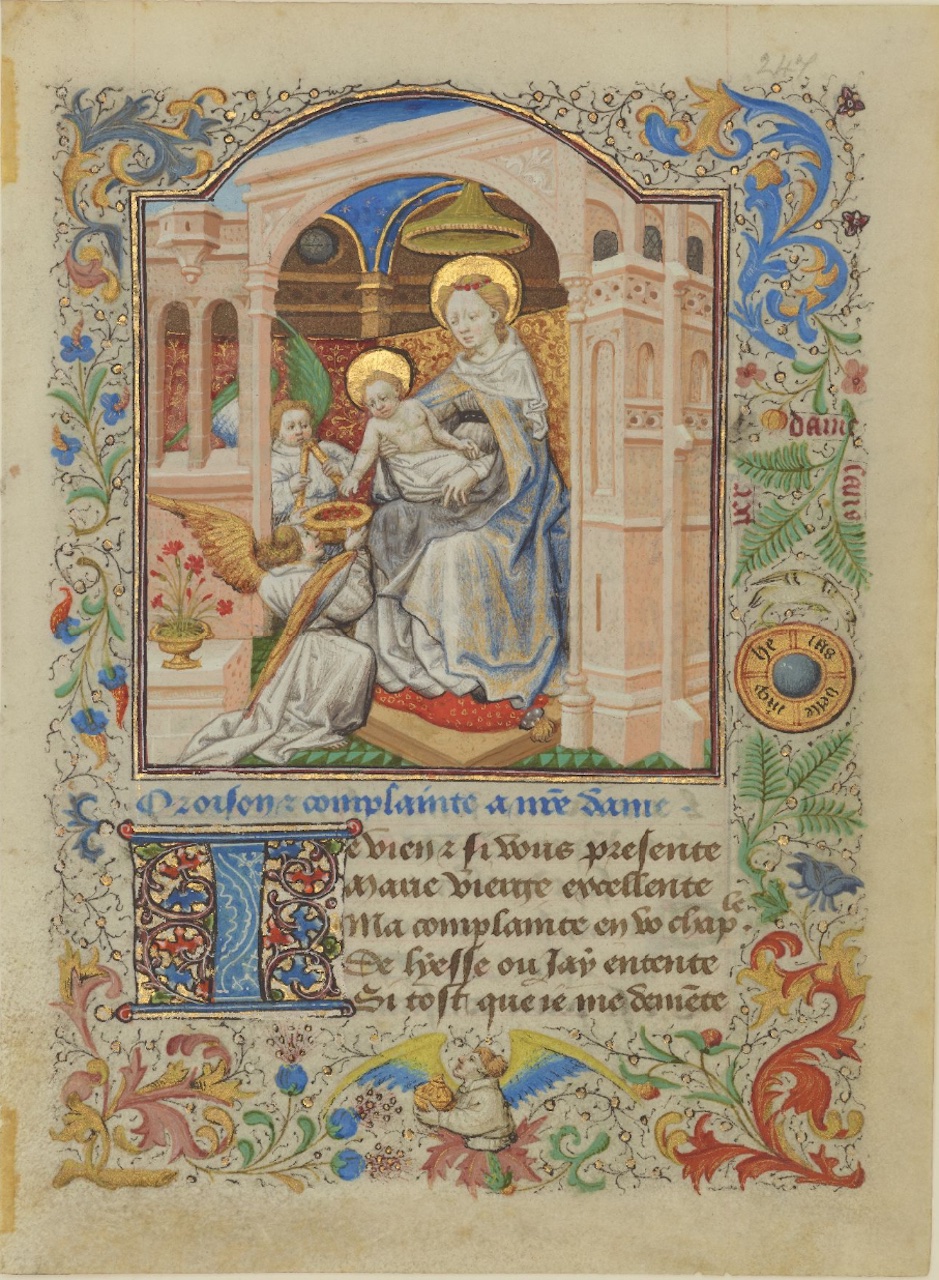 247
Oroison & complainte a nr̄e dame
Ie vien & si vous presente
Marie vierge excellente
Ma complainte en vo chaple.
De lyesse ou Jay entente
Si tost que ie me demēte
dame
per